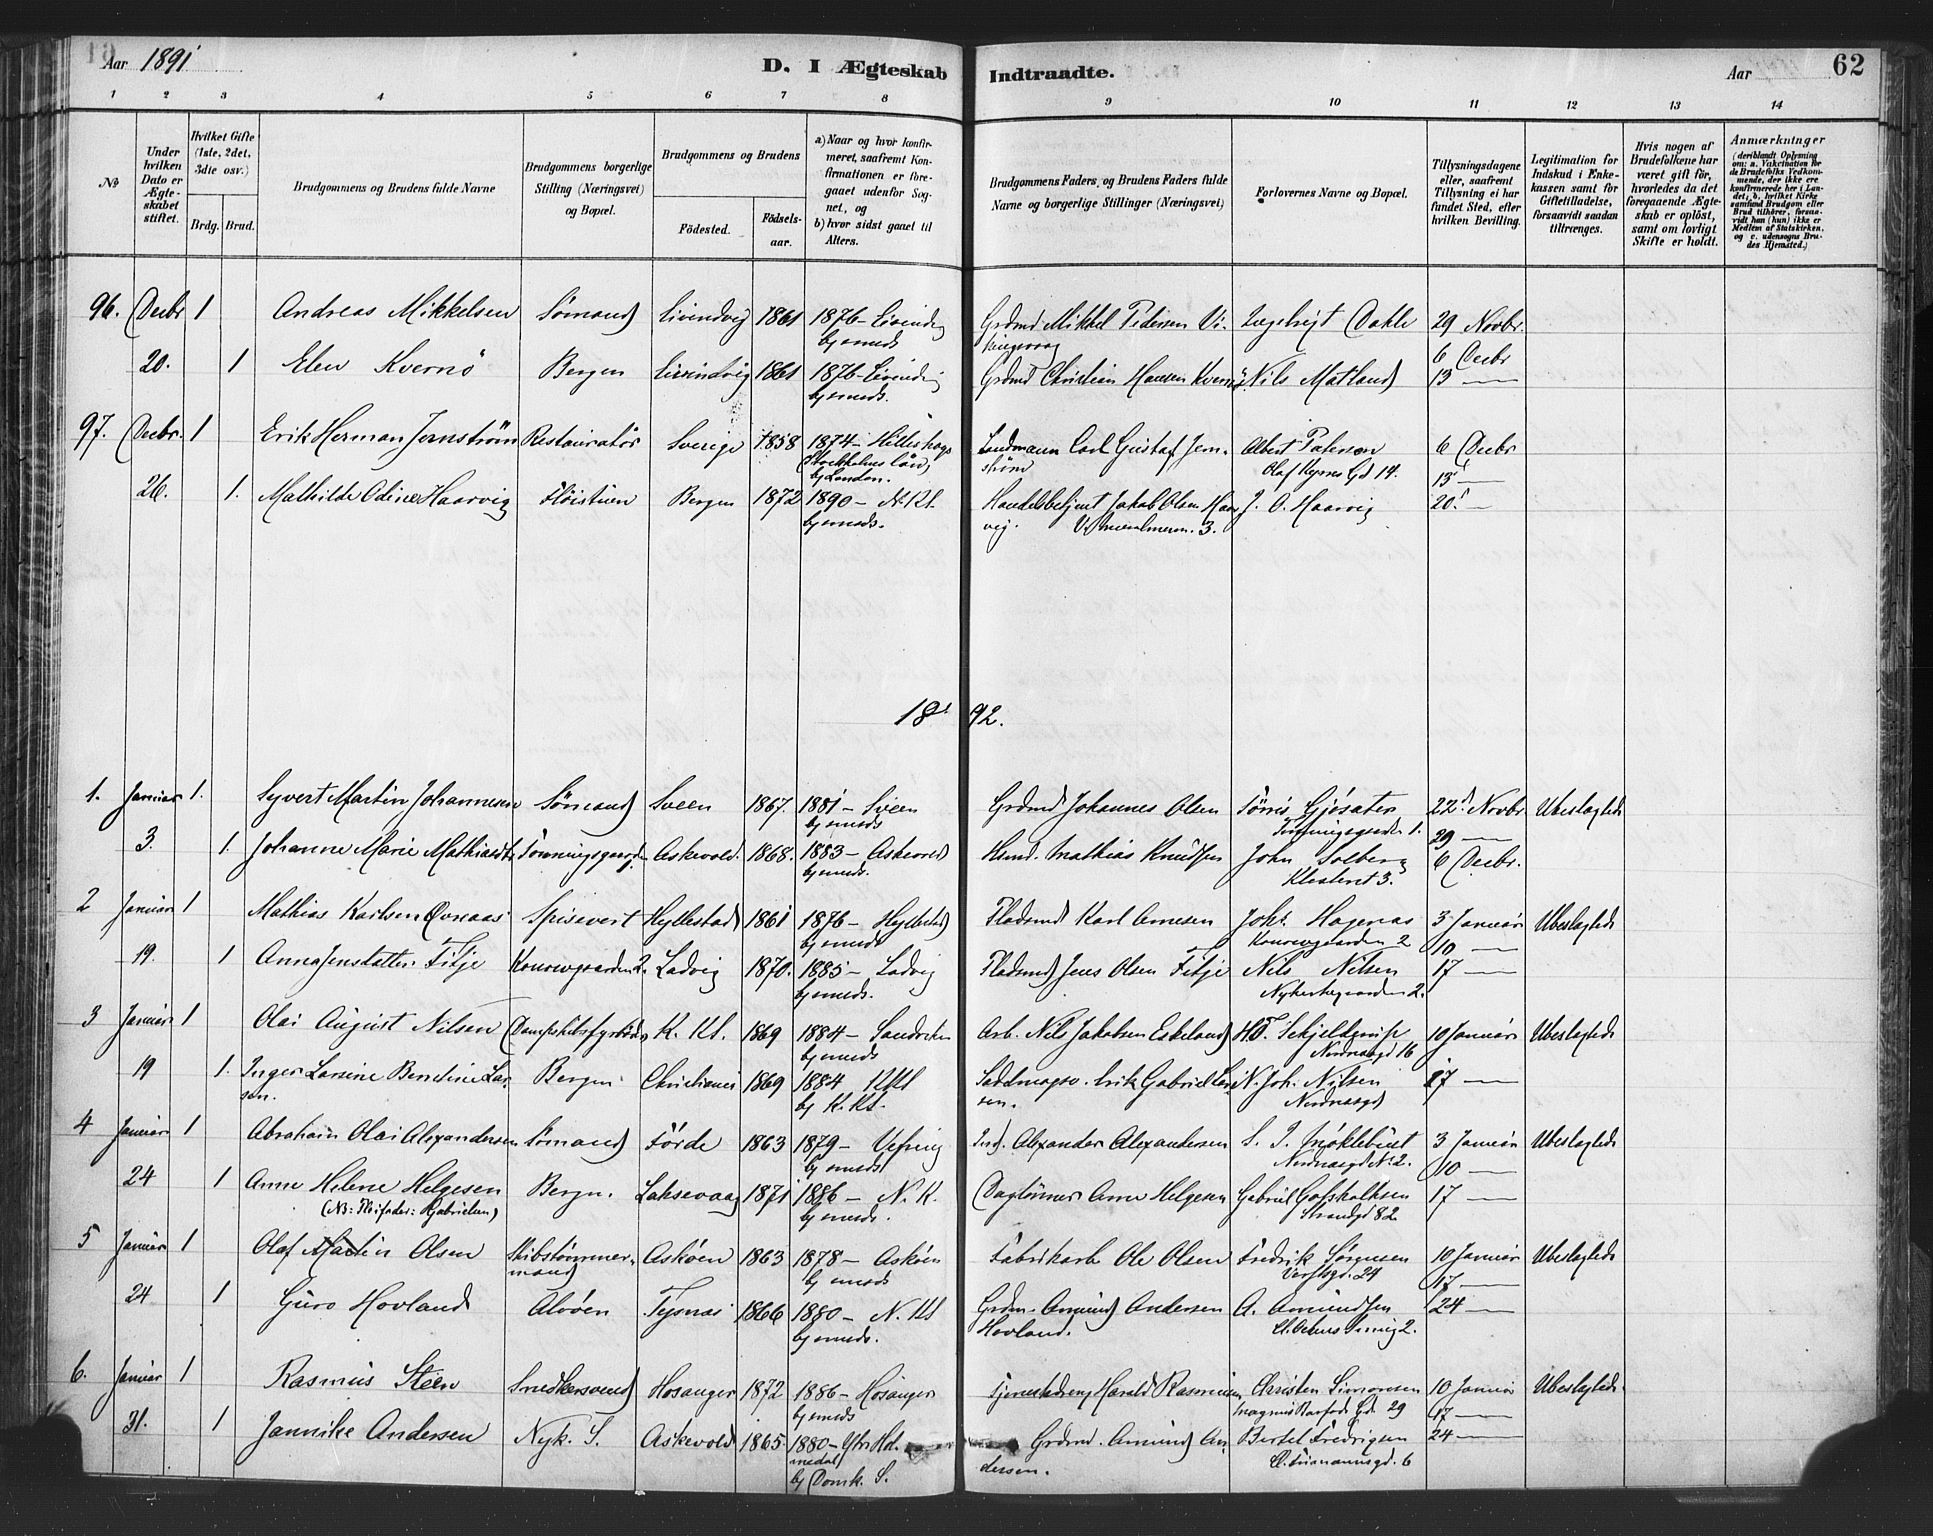 Aar 1891
D. I Ægteskab Indtraadte.
Aar
62
1 2 3 4 5 6 7 8 9 10 11 12 13 14
№
Under hvilken Dato er Ægteskabet stiftet.
Hvilket Gifte (1ste, 2det, 3die osv.)
Brdg. Brud.
Brudgommens og Brudens fulde Navne
Brudgommens borgerlige Stilling (Næringsvei) og Bopæl.
Brudgommens og Brudens
Fødested.
Fødselsaar.
a) Naar og hvor konfirmeret, saafremt Konfirmationen er foregaaet udenfor Sognet, og
b) hvor sidst gaaet til Alters.
Brudgommens Faders, og Brudens Faders fulde Navne og borgerlige Stillinger (Næringsvei)
Forlovernes Navne og Bopæl.
Tillysningsdagene eller, saafremt Tillysning ei har fundet Sted, efter hvilken Bevilling.
Legitimation for Indskud i Enkekassen samt for Giftetilladelse, forsaavidt saadan tiltrænges.
Hvis nogen af Brudefolkene har været gift før, hvorledes da det foregaaende Ægteskab er opløst, samt om lovligt Skifte er holdt.
Anmærkninger
(deriblandt Oplysning om: a. Vakcination for de Brudefolks Vedkommende, der ikke ere konfirmerede her i Landet; b. hvilket Kirkesamfund Brudgom eller Brud tilhører, forsaavidt han (hun) ikke er Medlem af Statskirken, og c. udensogns Brudes Hjemsted.)
96. Decbr 1 Andreas Mikkelsen Sømand Eivindvig 1861 1876 - Eivindvig Grdmd Mikkel Pedersen Dahle 29 Novbr.
bj smeds
20. 1 Elen Kvernø Bergen Eivindvig 1861 1876 - Eivindvig Grdmd Christian Hansen Kvernø Nils Matland 6 Decbr
bj smeds. 13 —
97. Decbr. 1 Erik Herman Jernstrøm Restauratør Sverige 1858 1874 - Hilleshogs Landmann Carl Gustaf Jernstrøm Albert Paterson 6 Decbr
Stockholms län, bj London. Olaf Kyrres Gd 14. 13 —
26. 1. Mathilde Odine Haarvig Fløistuen Bergen 1872 1890 - N. Kt. Handelsbetjent Jakob Olsen Haarvig. J. O. Haarvig 20. —
bj smeds. 3.
1892.
1. Januar 1. Syvert Martin Johannesen Sømand Sveen 1867. 1881 - Sveen Grdmd Johannes Olsen Tørris Gjøsater 22d Novbr Ubeslægtede
bj smeds 1. 29 —
3. 1. Johanne Marie Mathiasdt. Askevold. 1868. 1883 - Askevold Husmd. Mathias Knudsen John Solberg 6 Decbr.
bj smeds. Klosteret 3.
2 Januar 1 Mathias Karlsen Spisevert Hyllestad 1861 1876 - Hyllestad Pladsmd Karl Arnesen Joh. Hagenas 3 Januar Ubeslægtede
bj smeds Konowgaarden 2 10 —
19. 1 Anna Jensdatter Fitje Konowgaarden 2. Ladvig 1870. 1885 - Ladvig Pladsmd Jens Olsen Fitje Nils Nilsen 17 —
bj smeds. Nykirkegaarden 2.
3 Januar 1 Olai August Nilsen Dampskibsfyrbøder K. Kt. 1869 1884 - Sandviken Arb. Nils Jakobsen Eskeland 10 Januar Ubeslægtede
bj smeds Nordnæsgd 16
19 1. Inger Larsine Bendtine Larsen. Bergen Christiania 1869 1884 KKt Erik Gabriel Larsen. N. Joh. Nilsen 17 —
bj K. Kt. Nordnæsgd
4 Januar 1 Abraham Olai Alexandersen Sømand Førde 1863 1879 - Vefring Alexander Alexandersen 3 Januar Ubeslægtede
bj smeds Nordnæsgd № 2. 10 —
24 1 Anne Helene Helgesen Bergn. Laksevaag 1871 1886 - N. K. Dagløner Arne Helgesen Gabriel Gotskalksen 17 —
(NB: Stifader: Gabrielsen) bj smeds. Strandgd 82
5 Januar 1 Olaf Martin Olsen Skibstømmermand Askøen 1863 1878 - Askøen Fabrikarb Ole Olsen Fredrik Sørensen 10 Januar Ubeslægtede
bj smeds Verftsgd. 24 17 —
24 1 Guro Hovland Alvøen Tysnæs 1866 1880 - N. Kt Grdm. Amund Andersen Hovland. A. Amundsen 24 —
bj smeds. 2.
6. Januar 1 Rasmus Steen Snedkersvend Hosanger 1872 1886 - Hosanger Harald Rasmusen Christen Simonsen 10 Januar Ubeslægtede
bj smeds Magnus Barfods Gd. 29 17 —
31. 1 Jannike Andersen Nyk. S. Askevold 1865 1880 - Ytr. Holmedal Grdmd. Amund Andersen. Bertel Fredrigsen 24 —
bj Domk. S. 6